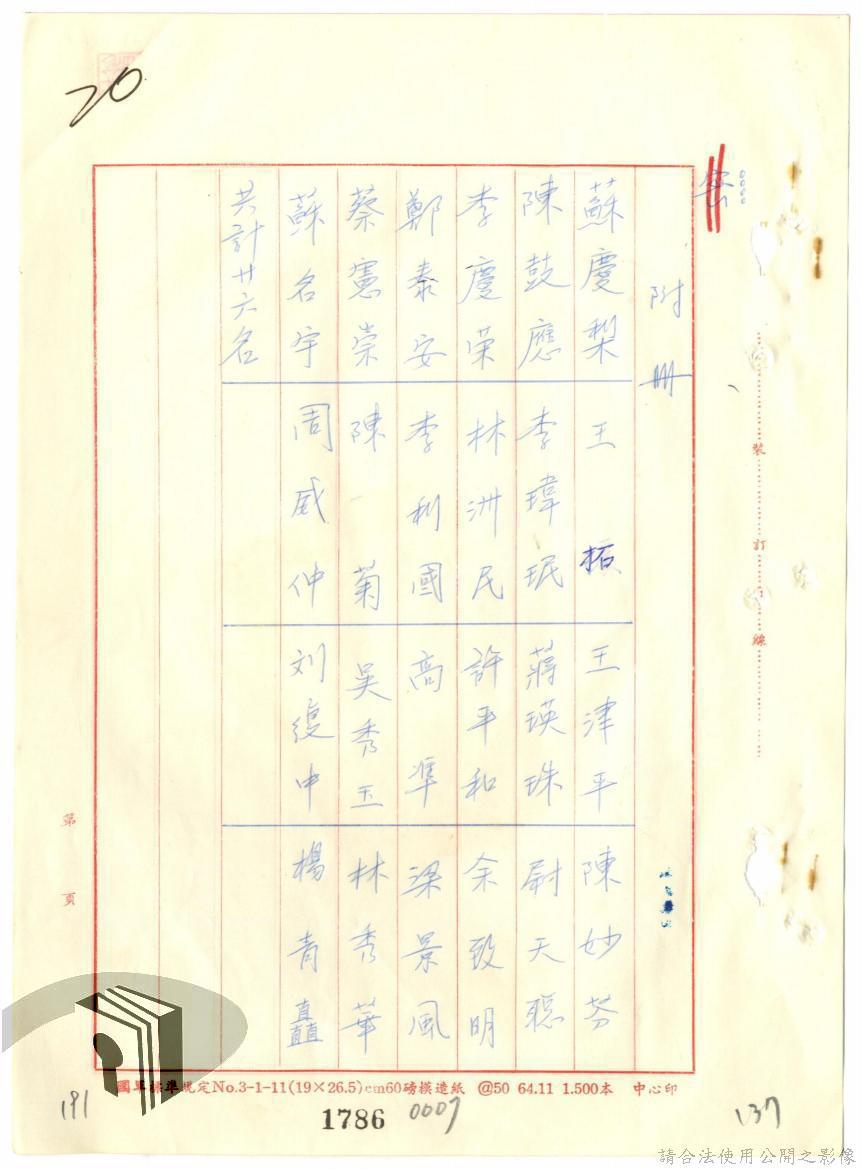 20
密
附冊
蘇慶梨 王拓 王津平 陳妙芬
陳鼓應 李瑋珉 蔣瑛珠 尉天聰
李慶荣 林洲民 許平和 余致明
鄭泰安 李利國 高準 梁景風
蔡憲崇 陳菊 吴秀玉 林秀華
蘇名宇 周威仲 刘復中 楊青矗
共計廿六名
裝
訂
線
第 頁
國軍標準規定No.3-1-11(19×26.5)cm60磅模造紙 @50 64.11 1.500本 中心印
191
1786
0007
137
請合法使用公開之影像